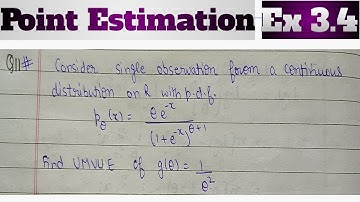 Point Estimation Ex 3.4
Q11# Consider single observation from a continuous
distribution on R with p.d.f.
p_θ(x) = θ e^{-x} / (1+e^{-x})^{θ+1}
Find UMVUE of g(θ) = 1/θ²